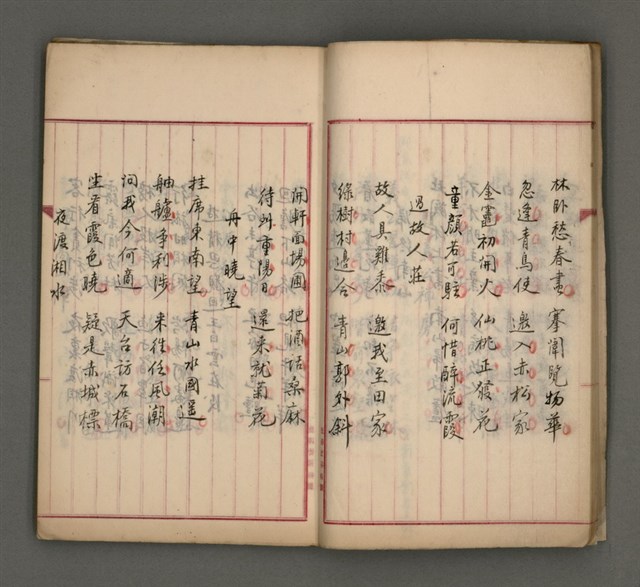 林臥愁春盡 搴帷覽物華
忽逢青鳥使 邀入赤松家
金竈初開火 仙桃正發花
童顏若可駐 何惜醉流霞
過故人莊
故人具雞黍 邀我至田家
綠樹村邊合 青山郭外斜
開軒面場圃 把酒話桑麻
待到重陽日 還來就菊花
舟中曉望
挂席東南望 青山水國遙
舳艫爭利涉 來往任風潮
問我今何適 天台訪石橋
坐看霞色曉 疑是赤城標
夜渡湘水